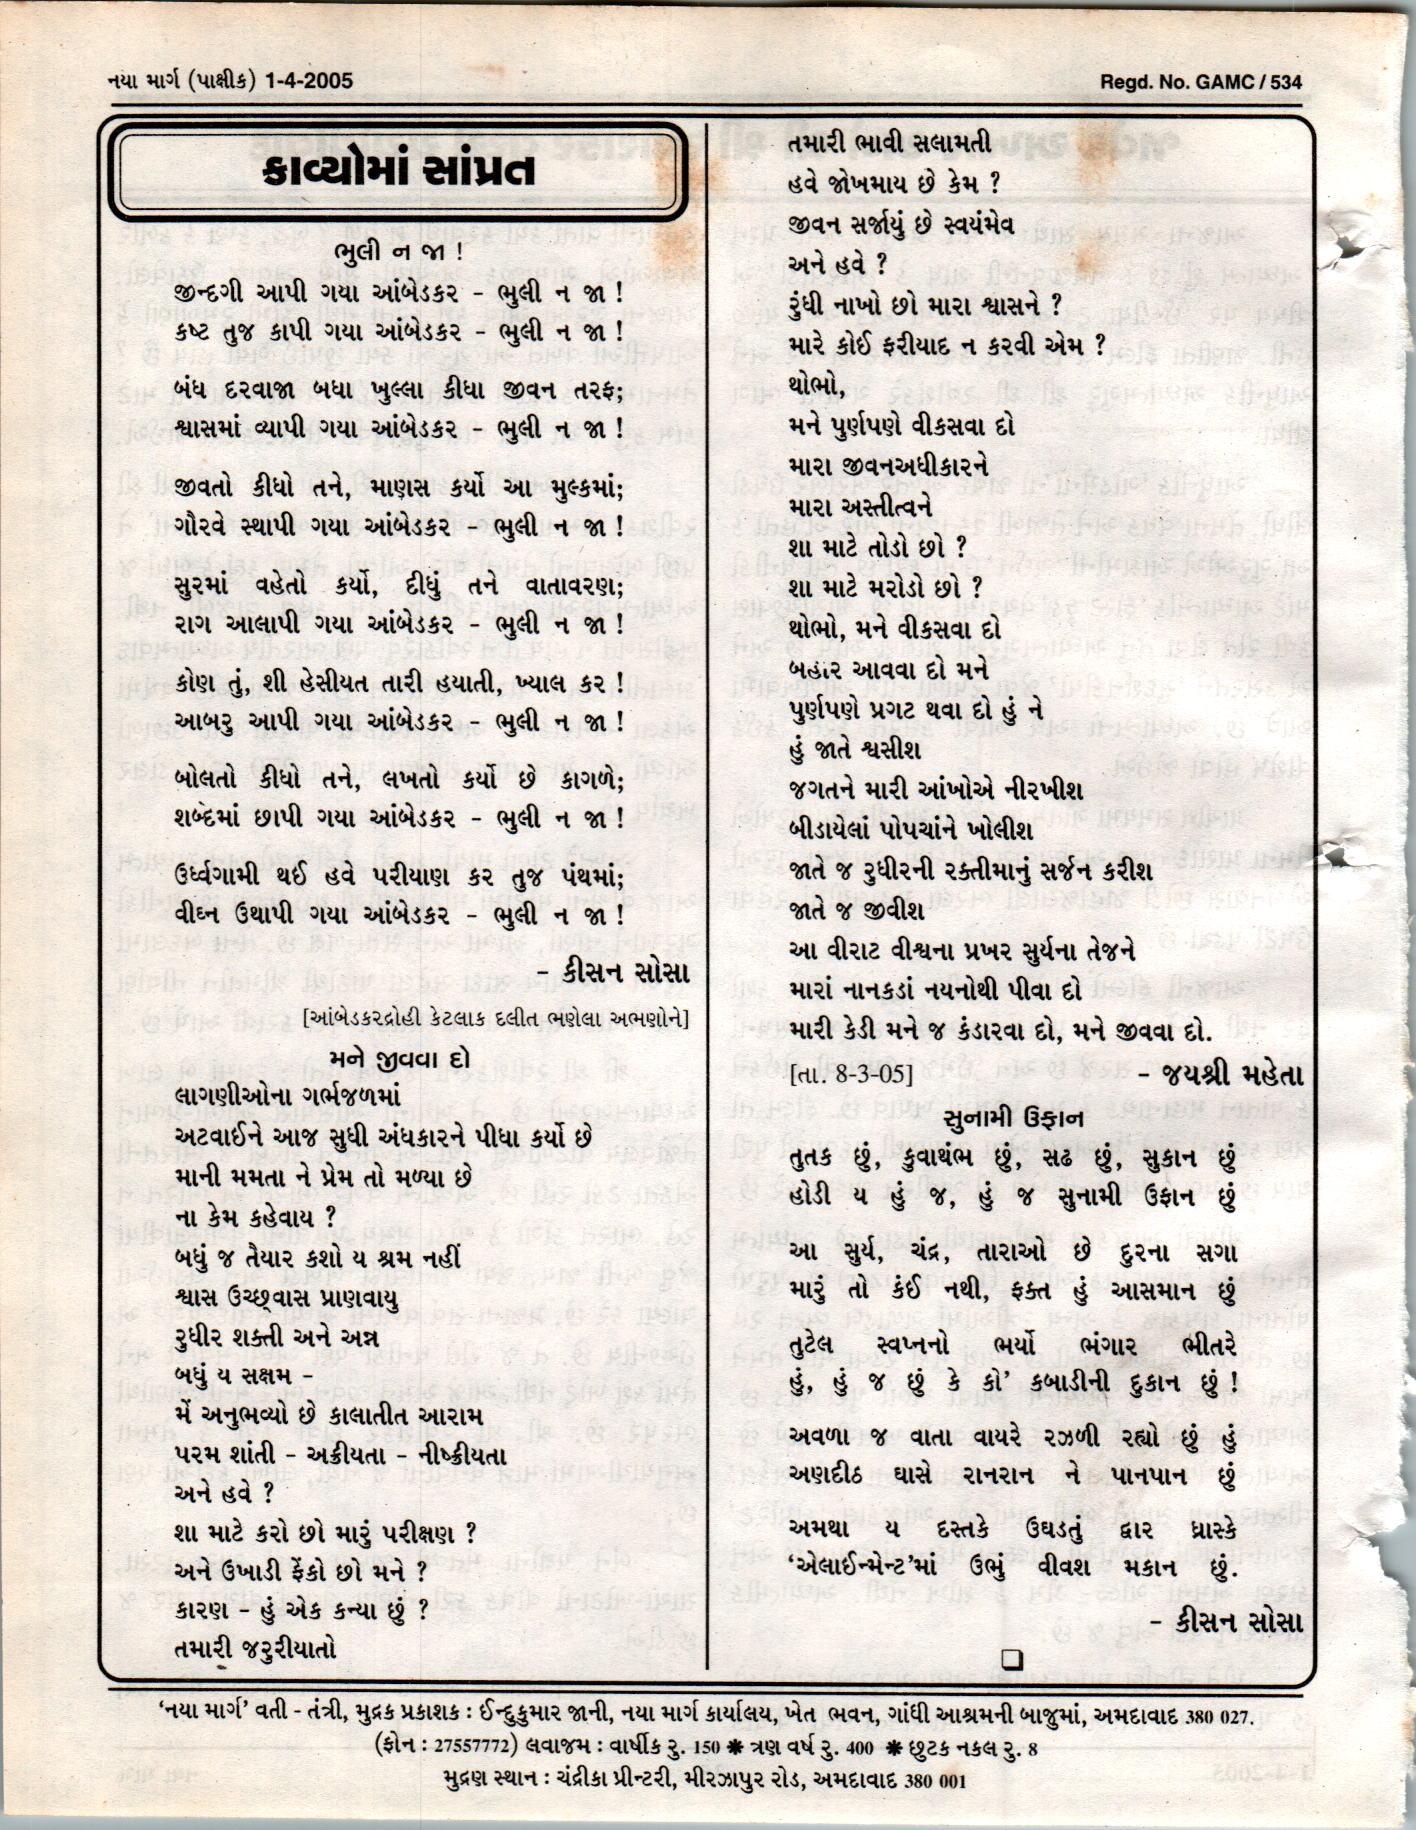 નયા માર્ગ (પાક્ષીક) 1-4-2005
Regd. No. GAMC / 534
કાવ્યોમાં સાંપ્રત
ભુલી ન જા !
જીન્દગી આપી ગયા આંબેડકર - ભુલી ન જા !
કષ્ટ તુજ કાપી ગયા આંબેડકર - ભુલી ન જા !
બંધ દરવાજા બધા ખુલ્લા કીધા જીવન તરફ;
શ્વાસમાં વ્યાપી ગયા આંબેડકર - ભુલી ન જા !
જીવતો કીધો તને, માણસ કર્યો આ મુલ્કમાં;
ગૌરવે સ્થાપી ગયા આંબેડકર - ભુલી ન જા !
સુરમાં વહેતો કર્યો, દીધું તને વાતાવરણ;
રાગ આલાપી ગયા આંબેડકર - ભુલી ન જા !
કોણ તું, શી હેસીયત તારી હયાતી, ખ્યાલ કર !
આબરુ આપી ગયા આંબેડકર - ભુલી ન જા !
બોલતો કીધો તને, લખતો કર્યો છે કાગળે;
શબ્દેમાં છાપી ગયા આંબેડકર - ભુલી ન જા !
ઉર્ધ્વગામી થઈ હવે પરીયાણ કર તુજ પંથમાં;
વીઘ્ન ઉથાપી ગયા આંબેડકર - ભુલી ન જા !
- કીસન સોસા
[આંબેડકરદ્રોહી કેટલાક દલીત ભણેલા અભણોને]
મને જીવવા દો
લાગણીઓના ગર્ભજળમાં
અટવાઈને આજ સુધી અંધકારને પીધા કર્યો છે
માની મમતા ને પ્રેમ તો મળ્યા છે
ના કેમ કહેવાય ?
બધું જ તૈયાર કશો ય શ્રમ નહીં
શ્વાસ ઉચ્છ્વાસ પ્રાણવાયુ
રુધીર શક્તી અને અન્ન
બધું ય સક્ષમ -
મેં અનુભવ્યો છે કાલાતીત આરામ
પરમ શાંતી - અક્રીયતા - નીષ્ક્રીયતા
અને હવે ?
શા માટે કરો છો મારું પરીક્ષણ ?
અને ઉખાડી ફેંકો છો મને ?
કારણ - હું એક કન્યા છું ?
તમારી જરુરીયાતો
તમારી ભાવી સલામતી
હવે જોખમાય છે કેમ ?
જીવન સર્જાયું છે સ્વયંમેવ
અને હવે ?
રુંધી નાખો છો મારા શ્વાસને ?
મારે કોઈ ફરીયાદ ન કરવી એમ ?
થોભો,
મને પુર્ણપણે વીકસવા દો
મારા જીવનઅધીકારને
મારા અસ્તીત્વને
શા માટે તોડો છો ?
શા માટે મરોડો છો ?
થોભો, મને વીકસવા દો
બહાર આવવા દો મને
પુર્ણપણે પ્રગટ થવા દો હું ને
હું જાતે શ્વસીશ
જગતને મારી આંખોએ નીરખીશ
બીડાયેલાં પોપચાંને ખોલીશ
જાતે જ રુધીરની રક્તીમાનું સર્જન કરીશ
જાતે જ જીવીશ
આ વીરાટ વીશ્વના પ્રખર સુર્યના તેજને
મારાં નાનકડાં નયનોથી પીવા દો
મારી કેડી મને જ કંડારવા દો, મને જીવવા દો.
[તા. 8-3-05] - જયશ્રી મહેતા
સુનામી ઉફાન
તુતક છું, કુવાથંભ છું, સઢ છું, સુકાન છું
હોડી ય હું જ, હું જ સુનામી ઉફાન છું
આ સુર્ય, ચંદ્ર, તારાઓ છે દુરના સગા
મારું તો કંઈ નથી, ફક્ત હું આસમાન છું
તુટેલ સ્વપ્નનો ભર્યો ભંગાર ભીતરે
હું, હું જ છું કે કો' કબાડીની દુકાન છું !
અવળા જ વાતા વાયરે રઝળી રહ્યો છું હું
અણદીઠ ઘાસે રાનરાન ને પાનપાન છું
અમથા ય દસ્તકે ઉઘડતું દ્વાર ધ્રાસ્કે
'એલાઈન્મેન્ટ'માં ઉભું વીવશ મકાન છું.
- કીસન સોસા
'નયા માર્ગ' વતી - તંત્રી, મુદ્રક પ્રકાશક : ઈન્દુકુમાર જાની, નયા માર્ગ કાર્યાલય, ખેત ભવન, ગાંધી આશ્રમની બાજુમાં, અમદાવાદ 380 027.
(ફોન : 27557772) લવાજમ : વાર્ષીક રુ. 150 ✱ ત્રણ વર્ષ રુ. 400 ✱ છુટક નકલ રુ. 8
મુદ્રણ સ્થાન : ચંદ્રીકા પ્રીન્ટરી, મીરઝાપુર રોડ, અમદાવાદ 380 001